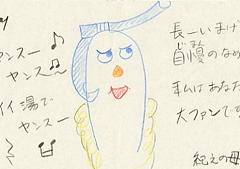 ヤンスー♪
ヤンスー♪
イイ湯で
ヤンスー
長ーいまげ
自慢のなめ
私はあなた
大ファンです
えの母